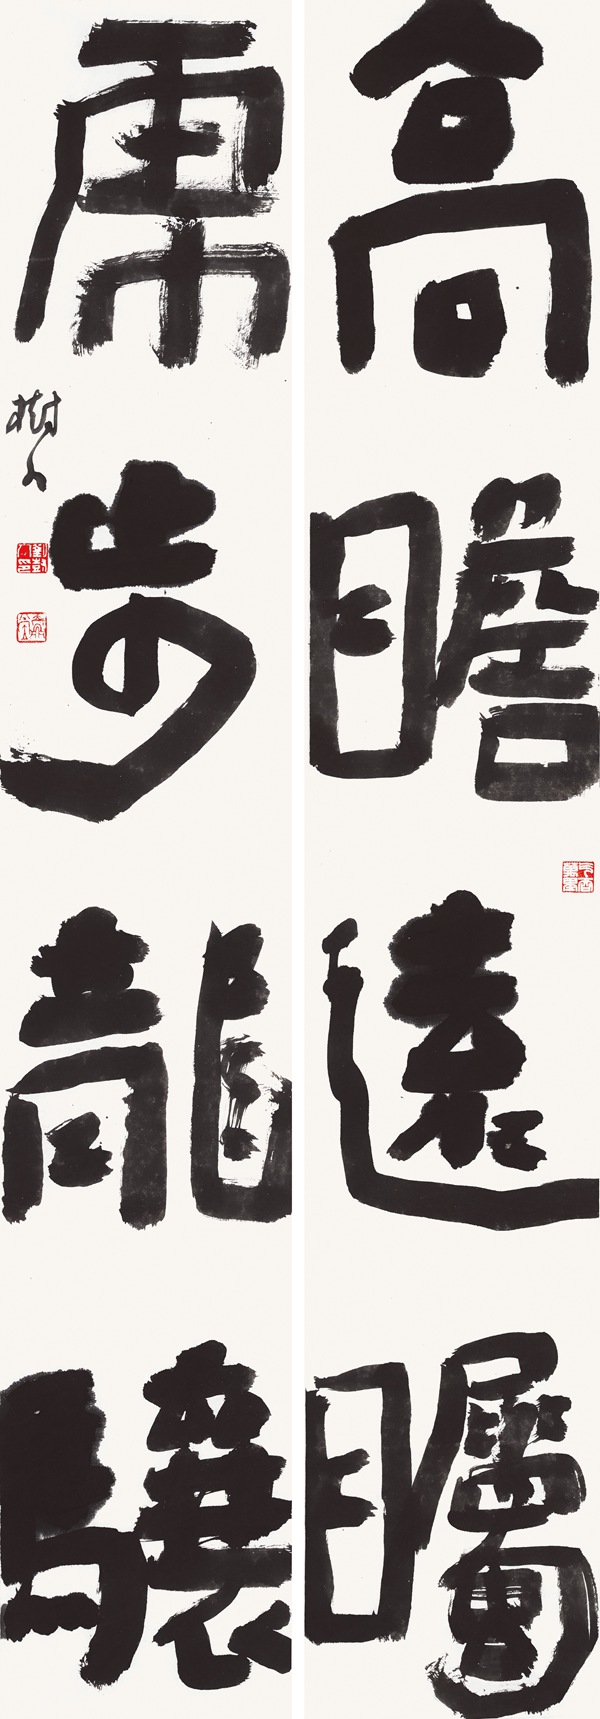 高瞻遠矚
虎步龍驤
樹人